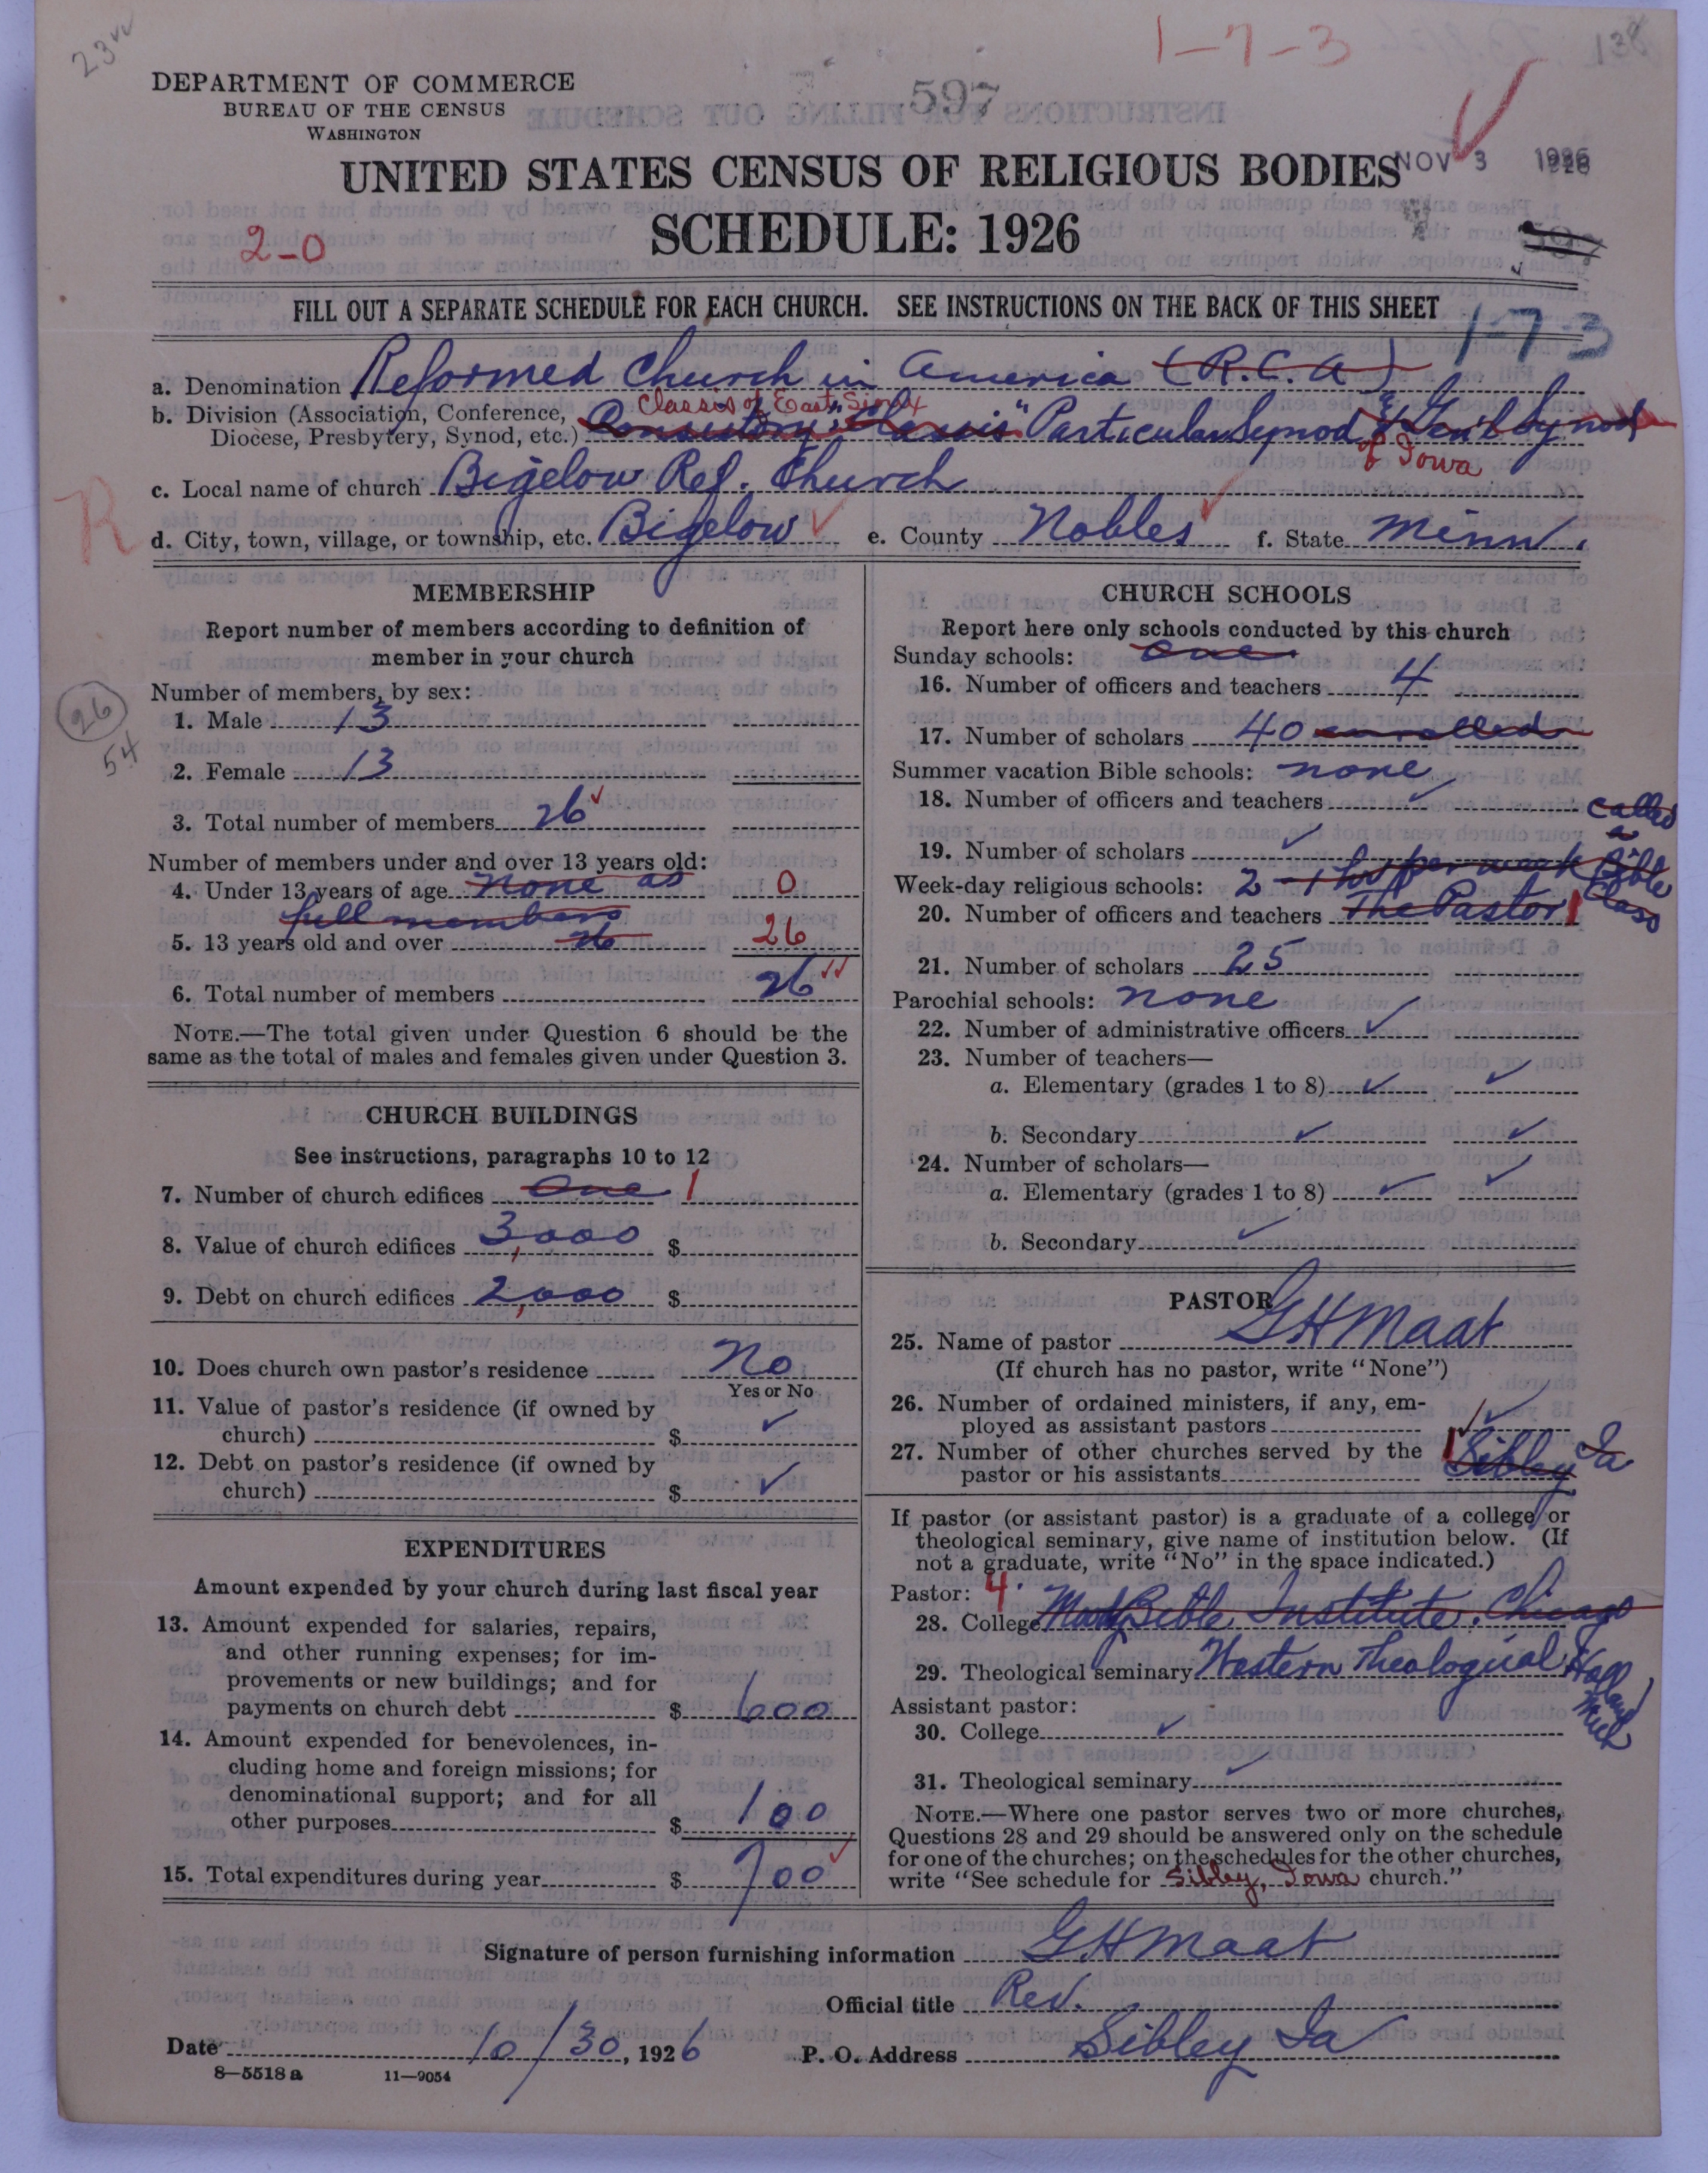 23
1-7-3
138
DEPARTMENT OF COMMERCE
BUREAU OF THE CENSUS
WASHINGTON
597
UNITED STATES CENSUS OF RELIGIOUS BODIES
NOV 3 1926
SCHEDULE: 1926
2-0
FILL OUT A SEPARATE SCHEDULE FOR EACH CHURCH. SEE INSTRUCTIONS ON THE BACK OF THIS SHEET
1-7-3
a. Denomination Reformed Church in America (R.C.A)
Classis of East Sioux
b. Division (Association, Conference, Diocese, Presbytery, Synod, etc.) Consistory "Classis" Particular Synod & Gen'l Synod
of Iowa
c. Local name of church Bigelow Ref. Church
R
d. City, town, village, or township, etc. Bigelow e. County Nobles f. State Minn.
MEMBERSHIP
Report number of members according to definition of
member in your church
Number of members, by sex:
26
54
1. Male 13
2. Female 13
3. Total number of members 26
Number of members under and over 13 years old:
4. Under 13 years of age none as 0
full members
5. 13 years old and over 26 26
6. Total number of members 26
NOTE.—The total given under Question 6 should be the
same as the total of males and females given under Question 3.
CHURCH BUILDINGS
See instructions, paragraphs 10 to 12
7. Number of church edifices One 1
8. Value of church edifices 3,000 $
9. Debt on church edifices 2,000 $
10. Does church own pastor's residence No
Yes or No
11. Value of pastor's residence (if owned by
church) $
12. Debt on pastor's residence (if owned by
church) $
EXPENDITURES
Amount expended by your church during last fiscal year
13. Amount expended for salaries, repairs,
and other running expenses; for im-
provements or new buildings; and for
payments on church debt $ 600
14. Amount expended for benevolences, in-
cluding home and foreign missions; for
denominational support; and for all
other purposes $ 100
15. Total expenditures during year $ 700
CHURCH SCHOOLS
Report here only schools conducted by this church
Sunday schools: One
16. Number of officers and teachers 4
17. Number of scholars 40 enrolled
Summer vacation Bible schools: none
18. Number of officers and teachers
19. Number of scholars
Week-day religious schools: 2 - 1 hr per week called a Bible Class
20. Number of officers and teachers The Pastor 1
21. Number of scholars 25
Parochial schools: none
22. Number of administrative officers
23. Number of teachers—
a. Elementary (grades 1 to 8)
b. Secondary
24. Number of scholars—
a. Elementary (grades 1 to 8)
b. Secondary
PASTOR
25. Name of pastor G H Maat
(If church has no pastor, write "None")
26. Number of ordained ministers, if any, em-
ployed as assistant pastors
27. Number of other churches served by the
pastor or his assistants 1 Sibley Ia
If pastor (or assistant pastor) is a graduate of a college or
theological seminary, give name of institution below. (If
not a graduate, write "No" in the space indicated.)
Pastor: 4
28. College Moody Bible Institute, Chicago
29. Theological seminary Western Theological Holland Mich
Assistant pastor:
30. College
31. Theological seminary
NOTE.—Where one pastor serves two or more churches,
Questions 28 and 29 should be answered only on the schedule
for one of the churches; on the schedules for the other churches,
write "See schedule for Sibley, Iowa church."
Signature of person furnishing information G H Maat
Official title Rev.
Date 10/30, 1926 P. O. Address Sibley Ia
8—5518 a 11—9054